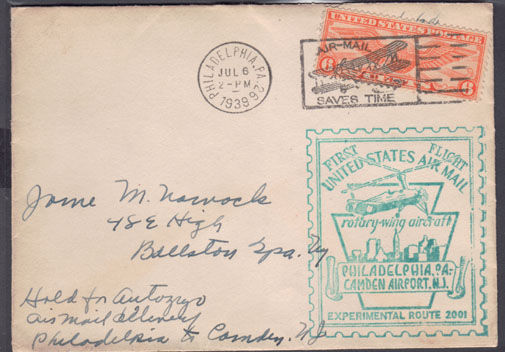 PHILADELPHIA, PA. 26
JUL 6
2-PM
1939
AIR-MAIL
SAVES TIME
UNITED STATES POSTAGE
6 6
FIRST FLIGHT
UNITED STATES AIR MAIL
rotary-wing aircraft
PHILADELPHIA, PA.-
CAMDEN AIRPORT, N.J.
EXPERIMENTAL ROUTE 2001
M.
48 E High
Ballston Spa. Ny
Hold for Autogyro
air mail delivery
Philadelphia to Camden, NJ